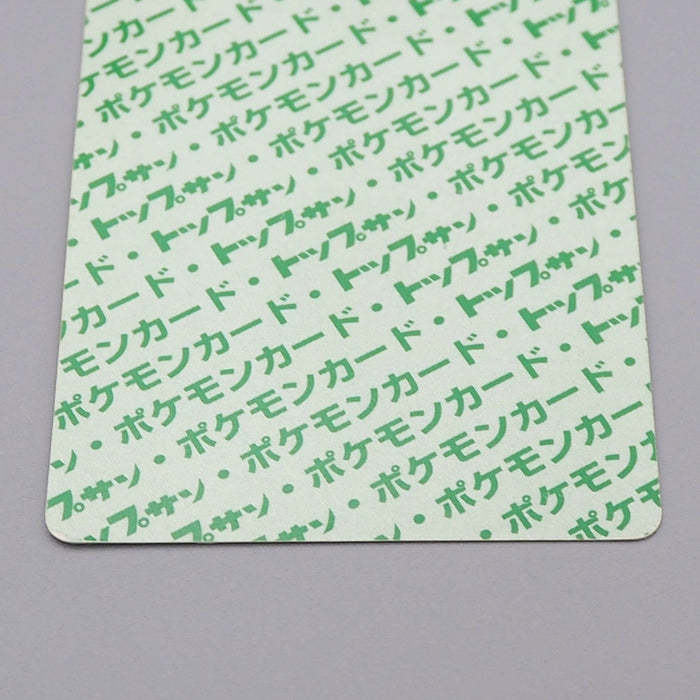 ンカード・
ケモンカード・トッ
・ポケモンカード・トップ
サン・ポケモンカード・ト
ップサン・ポケモンカード・
・トップサン・ポケモンカード
ード・トップサン・ポケモンカ
カード・トップサン・ポケモン
モンカード・トップサン・ポケ
ポケモンカード・トップサン・
ン・ポケモンカード・トップサ
プサン・ポケモンカード・トッ
ップサン・ポケモンカード・
トップサン・ポケモンカード
プサン・ポケモンカ
ン・ポケモ